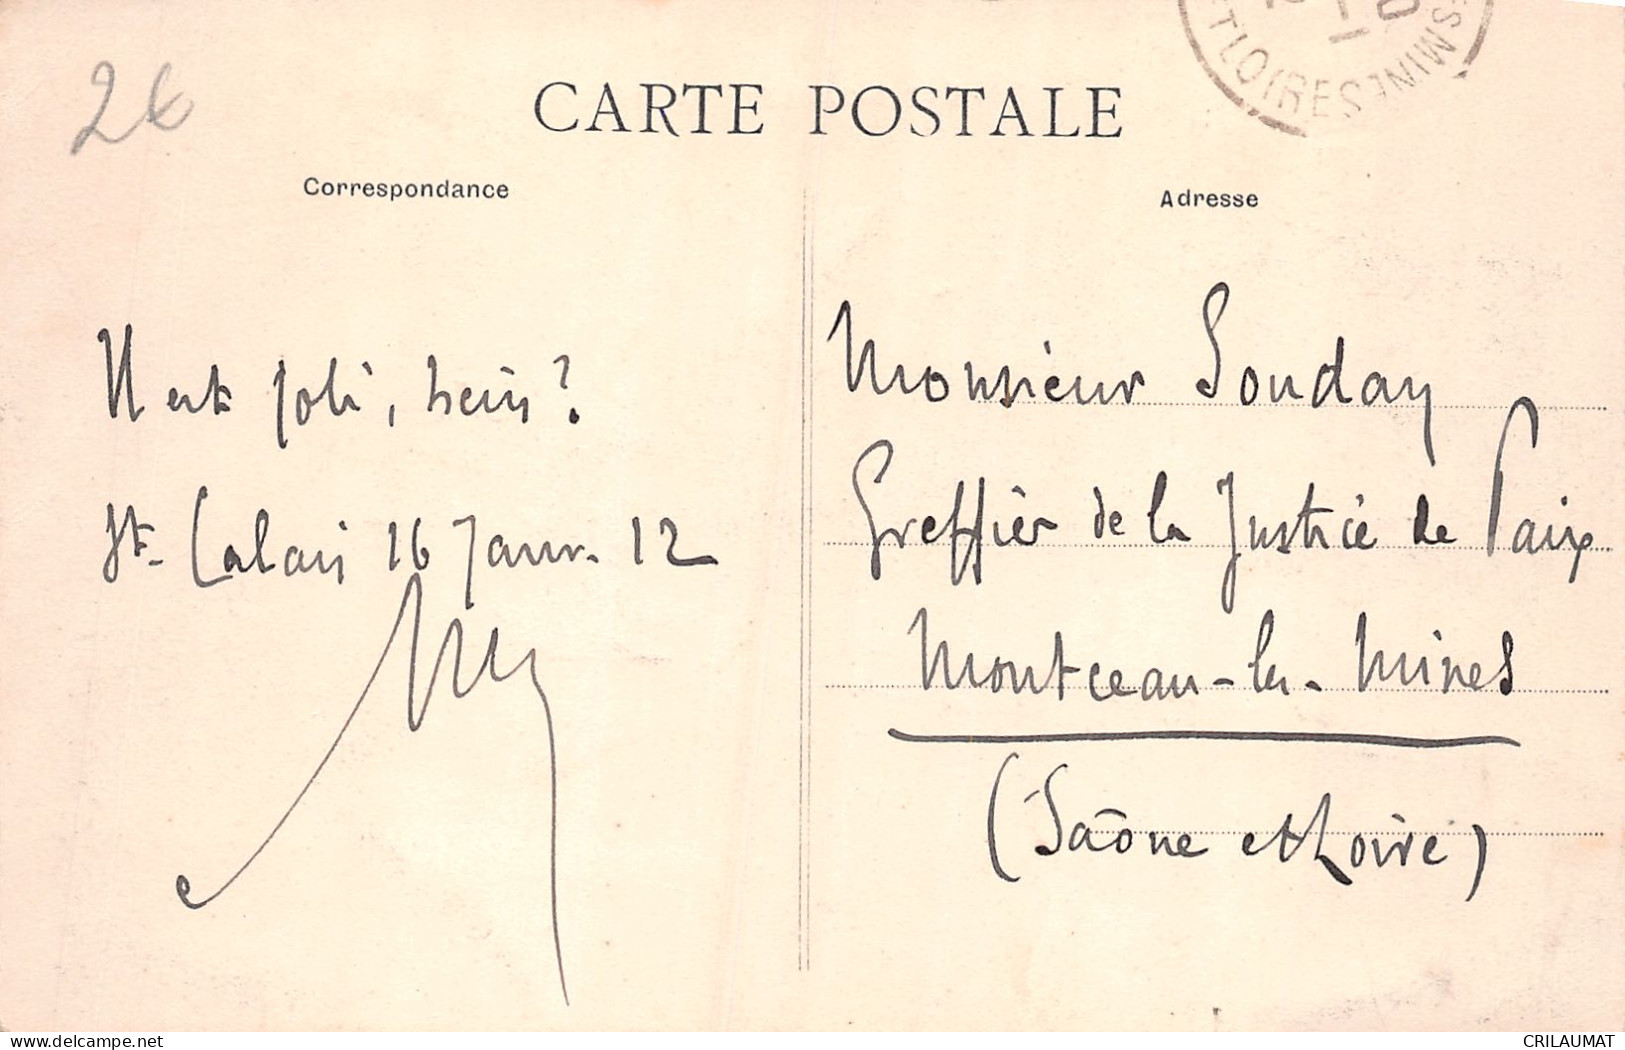 2€
CARTE POSTALE
Correspondance
Adresse
ET LOIRE
ES MINES
Il est joli, hein ?
St. Calais 16 Janv. 12
Monsieur Souday
Greffier de la Justice de Paix
Montceau-les-Mines
(Saône et Loire)
delcampe.net
CRILAUMAT